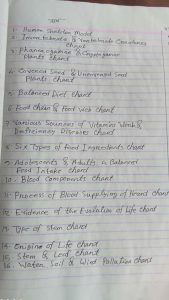 1- Human Skeleton Model
2- Invertebrata & Vertebrata Creatures
Chart
3- Phanerogamae & Cryptogamae
Plants Chart
4- Covered Seed & Uncovered Seed
Plants Chart
5- Balanced Diet Chart
6- Food Chain & Food Web Chart
7- Various Sources of Vitamins World &
Deficiency Diseases Chart
8- Six Types of Food Ingredients Chart
9- Adolescents & Adults a Balanced
Food Intake Chart
10- Blood Components Chart
11- Process of Blood Supplying of Heart Chart
12- Evidence of the Evolution of Life Chart
13- Type of Stem Chart
14- Origins of Life Chart
15- Stem & Leaf Chart
16- Water, Soil & Wind Pollution Chart